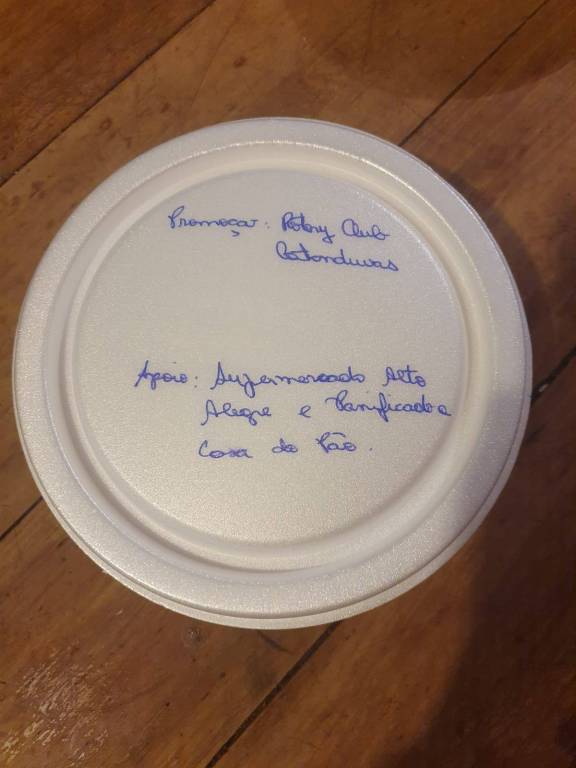 Promoção: Rotary Club
Catanduvas
Apoio: Supermercado Alto
Alegre e Panificadora
Casa do Pão.